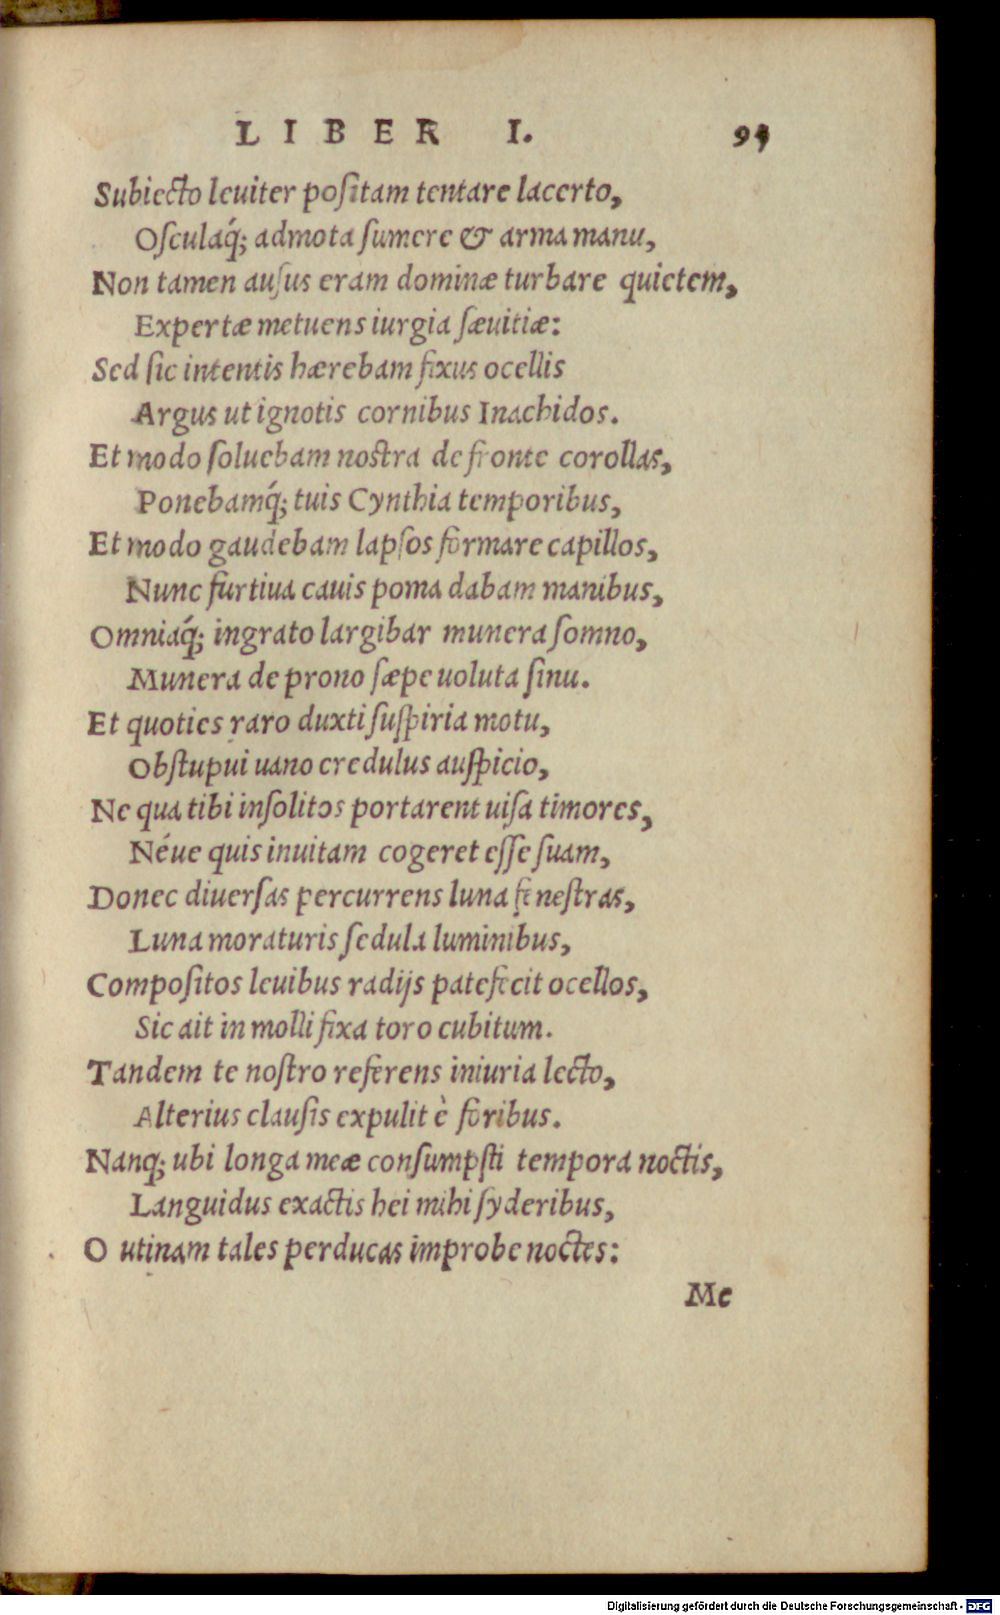 LIBER I. 95
Subiecto leuiter positam tentare lacerto,
Osculaq́; admota sumere & arma manu,
Non tamen ausus eram dominæ turbare quietem,
Expertæ metuens iurgia sæuitiæ:
Sed sic intentis hærebam fixus ocellis
Argus ut ignotis cornibus Inachidos.
Et modo soluebam nostra de fronte corollas,
Ponebamq́; tuis Cynthia temporibus,
Et modo gaudebam lapsos formare capillos,
Nunc furtiua cauis poma dabam manibus,
Omniaq́; ingrato largibar munera somno,
Munera de prono sæpe uoluta sinu.
Et quoties raro duxti suspiria motu,
Obstupui uano credulus auspicio,
Ne qua tibi insolitos portarent uisa timores,
Néue quis inuitam cogeret esse suam,
Donec diuersas percurrens luna fenestras,
Luna moraturis sedula luminibus,
Compositos leuibus radijs patefecit ocellos,
Sic ait in molli fixa toro cubitum.
Tandem te nostro referens iniuria lecto,
Alterius clausis expulit è foribus.
Nanq; ubi longa meæ consumpsti tempora noctis,
Languidus exactis hei mihi syderibus,
O utinam tales perducas improbe noctes:
Me
Digitalisierung gefördert durch die Deutsche Forschungsgemeinschaft - DFG